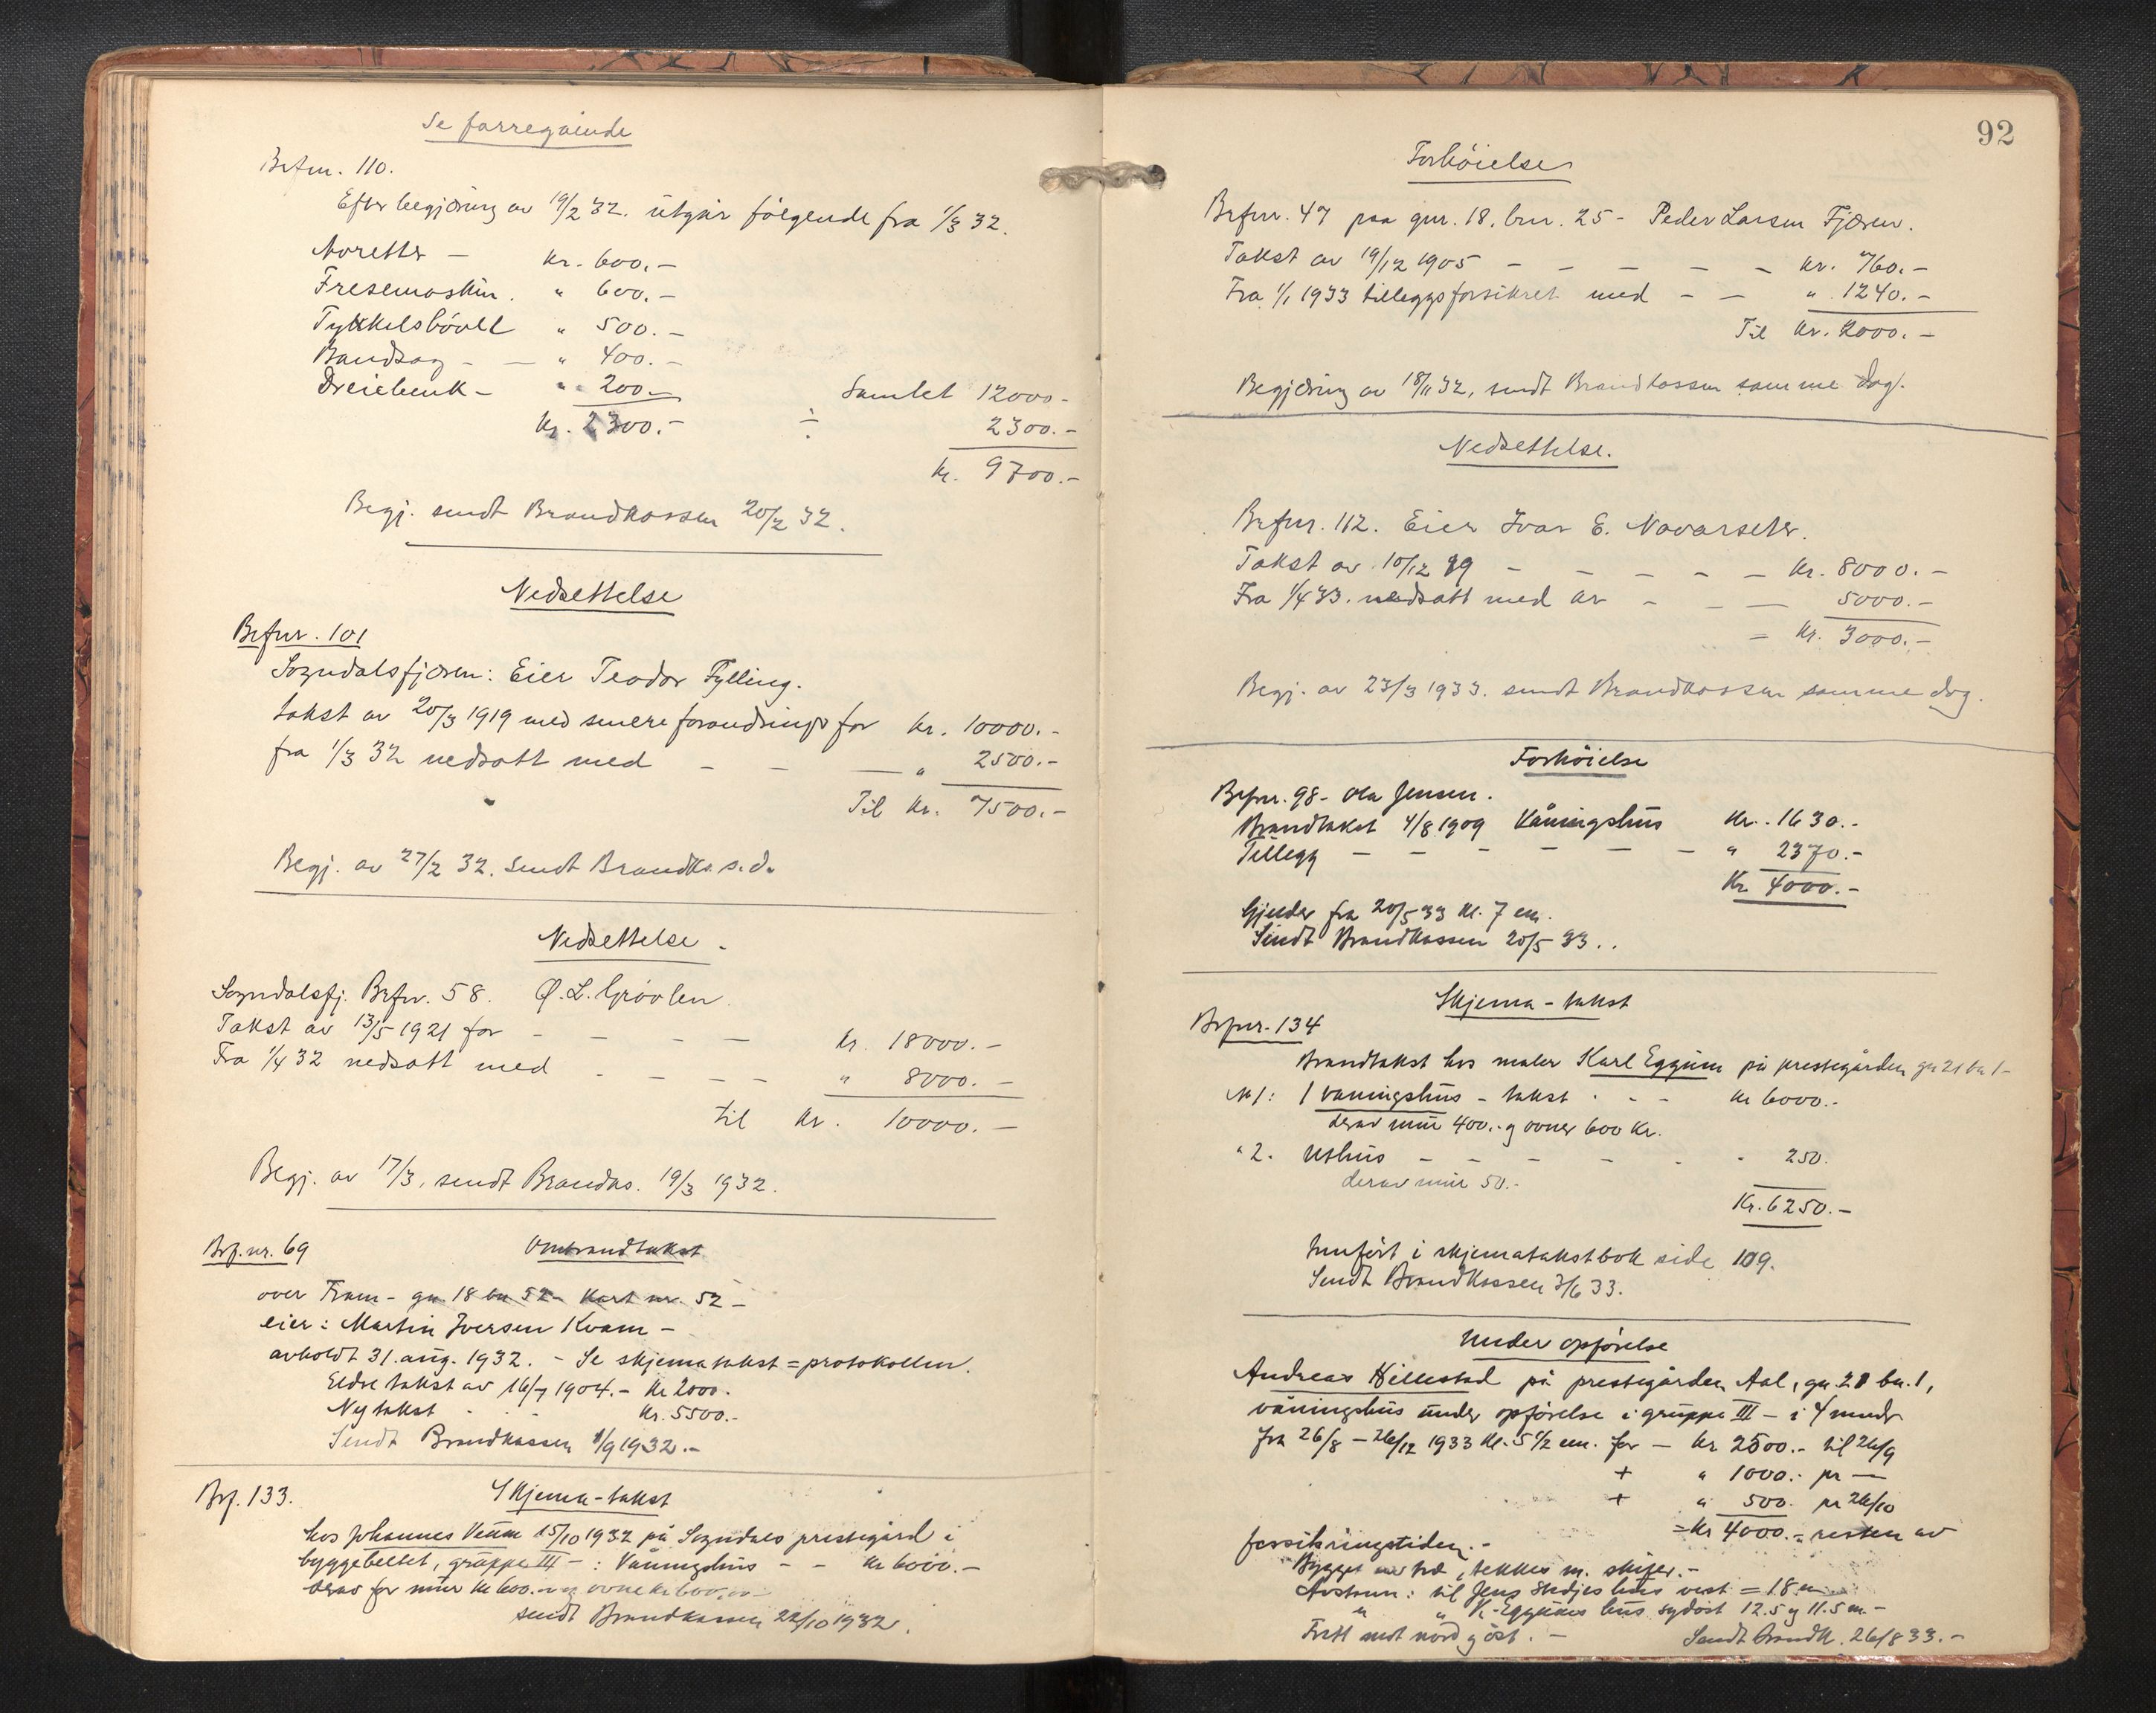 Se forregående
Brfnr. 110.
Efter begjæring av 19/2 32. utgår følgende fra 1/3 32.
Avretter — kr. 600.—
Fresemaskin. " 600.—
Tykkelshövel " 500.—
Bandsag — — " 400.—
Dreiebenk — " 200.— Samlet 12000-
Kr. 2300.— ÷ 2300.—
kr. 9700.—
Begj. sendt Brandkassen 20/2 32.
Nedsettelse
Brfnr. 101
Sogndalsfjæren: Eier Teodor Fylling.
takst av 20/3 1919 med senere forandringr for kr. 10000.-
fra 1/3 32 nedsatt med — — — " 2500.-
Til kr. 7500.—
Begj. av 27/2 32. Sendt Brandk. s.d.
Nedsettelse.
Sogndalsfj. Brfnr. 58. Ø. L. Grövlen
Takst av 13/5 1921 for — — — — kr. 18000.—
Fra 1/4 32 nedsatt med - — — — " 8000.—
til kr. 10000.—
Begj. av 17/3, sendt Brandks. 19/3 1932.
Brf.nr. 69 Ombrandtakst
over Fram - gn. 18 bn 52 - Kart nr. 52 —
eier: Martin Iversen Kvam —
avholdt 31. aug. 1932. - Se skjematakst=protokollen.
Eldre takst av 16/7 1904.- Kr 2000.
Ny takst - - - Kr. 5500.-
Sendt Brandkassen 1/9 1932.—
Brf. 133. Skjema-takst
hos Johannes Venm 15/10 1932 på Sogndals prestegård i
byggebeltet, gruppe III — : Våningshus — — Kr 6000.—
derav for mur kr 600.- og ovne kr 600.-
sendt Brandkassen 22/10 1932.
92
Forhöielse
Brfnr. 47 paa gnr. 18, bnr. 25 - Peder Larsen Fjæren.
Takst av 19/12 1905 — — — — — kr. 760.—
Fra 1/1 1933 tilleggsforsikret med — — " 1240.—
Til kr. 2000.—
Begjæring av 18/11 32, sendt Brandkassen samme dag.
Nedsettelse.
Brfnr. 112. Eier Ivar E. Navarseter.
Takst av 10/12 29 — — — — — kr. 8000.—
Fra 1/4 33. nedsatt med kr — — — 5000.—
— Kr. 3000.—
Begj. av 23/3 1933. sendt Brandkassen samme dag.
Forhöielse
Brfnr. 98 - Ola Jensen.
Brandtakst 4/8 1909 Våningshus Kr. 1630.-
Tillegg — — — — — — " 2370.-
Kr 4000.—
Gjelder fra 20/5 33 kl. 7 em.
Sendt Brandkassen 20/5 33..
Skjema-takst
Brfnr. 134
Brandtakst hos maler Karl Eggum på prestegården gn 21 bn 1-
№ 1: 1 våningshus - takst - - - kr 6000.-
derav mur 400.- og ovner 600 kr.
" 2. Uthus — — — — - - 250.
derav mur 50.-
Kr. 6250.—
Innfört i skjematakstbok side 109.
Sendt Brandkassen 3/6 33.
Under opförelse
Andreas Hillestad på prestegården Aal, gn. 21 bn. 1,
våningshus under opförelse i gruppe III — i 4 mndr
fra 26/8 — 26/12 1933 kl. 5 1/2 em. for — kr 2500.- til 26/9
+ " 1000.- pr —
+ " 500. pr 26/10
=kr 4000.- resten av
forsikringstiden.-
Bygget av tre, tekkes m. skifer.-
Avstann: til Jens Stedjes hus vest = 18 m
" " K. Eggums hus sydöst 12.5 og 11.5 m.-
Fritt mot nord og öst.— Sendt Brandk. 26/8 33.—